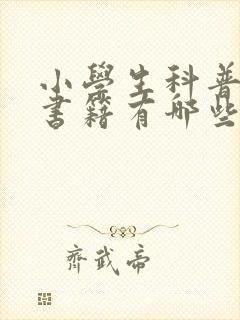 小學生科普
書籍有哪些
齊武帝